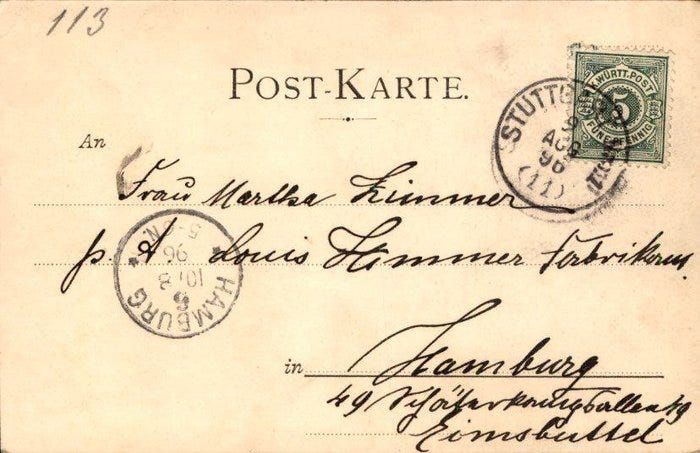 113
POST-KARTE.
K. WÜRTT. POST
5
FÜNF PFENNIG
STUTTG
9
AUG
96
(11)
An
Frau Martha Zimmer
p. A. Louis Hemmer Fabrikant
5-6N
96
10.8
6
* HAMBURG *
in Hamburg
49
Eimsbüttel